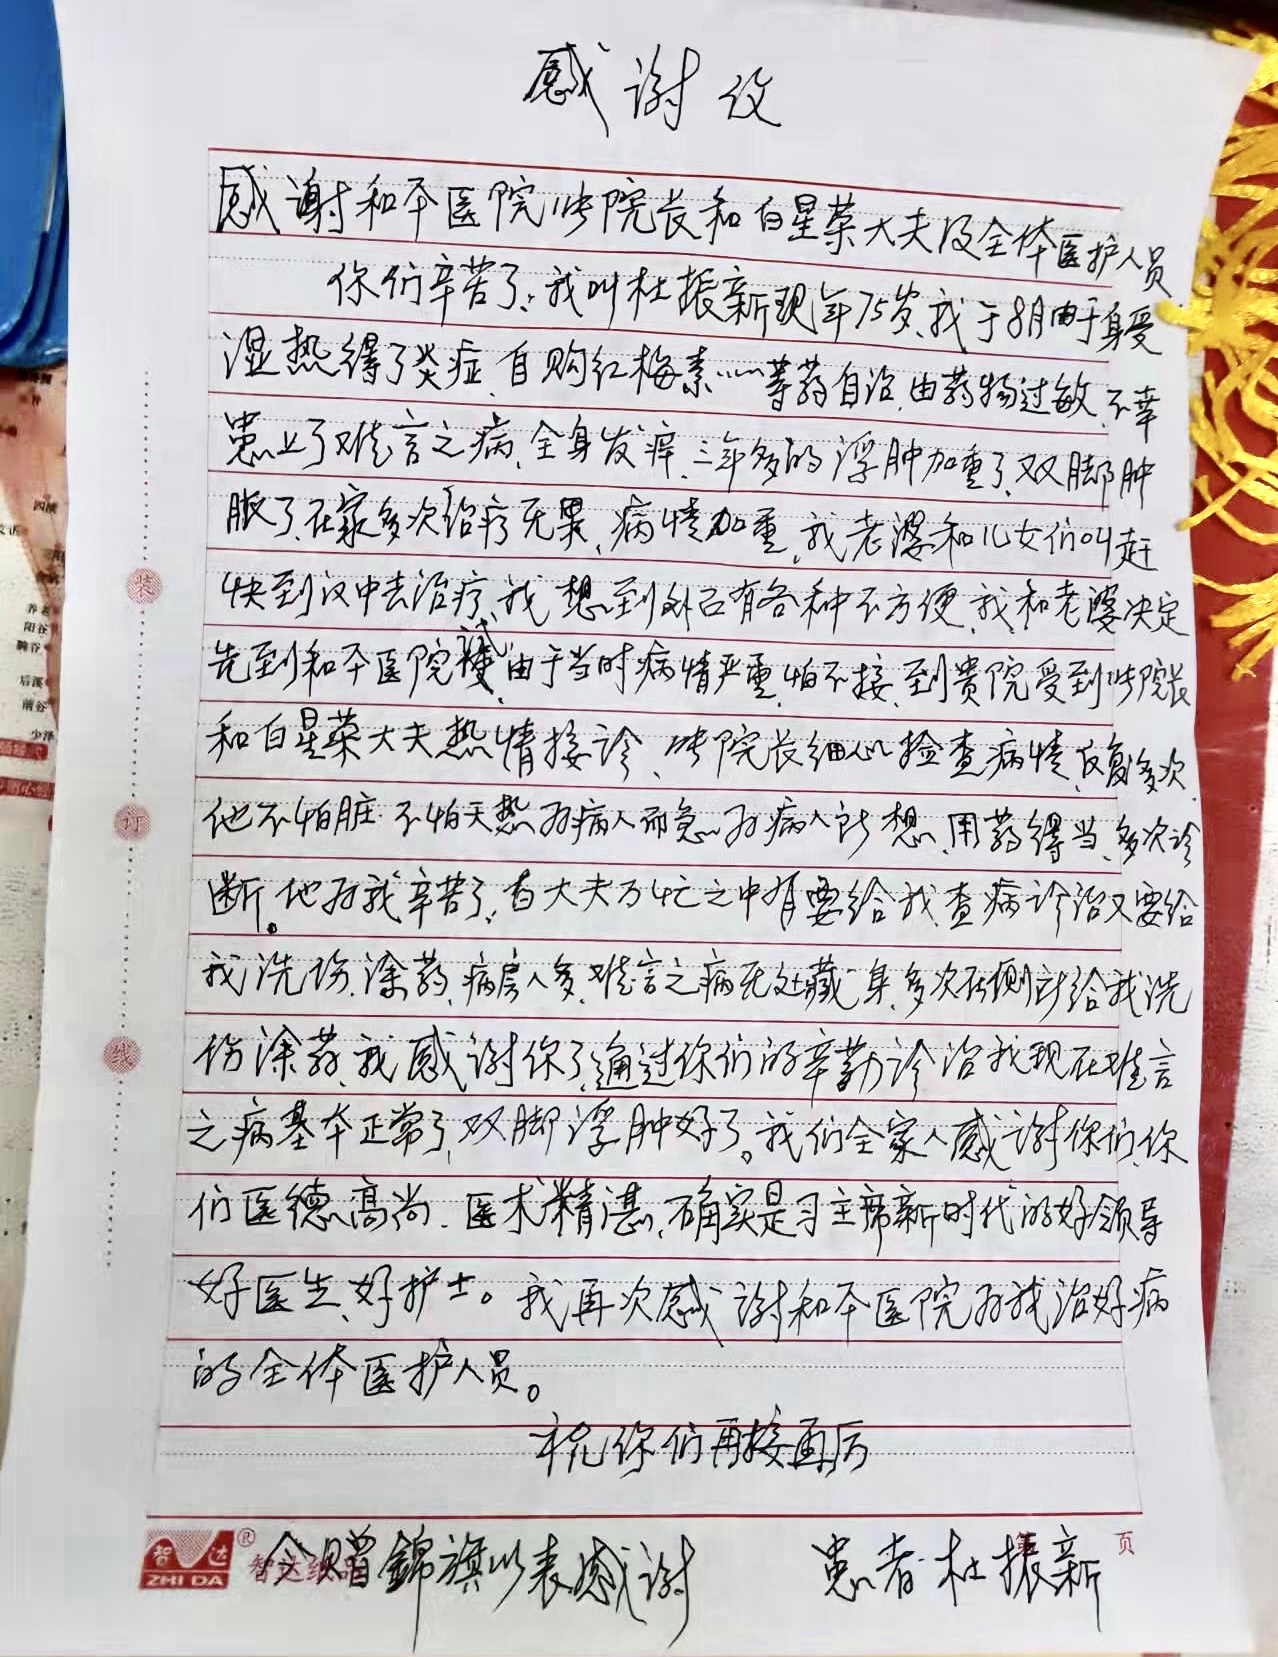 感谢
感谢和平医院 院长和白星荣大夫及全体医护人员
你们辛苦了、我叫杜振新现年75岁、我于8月由于身受
湿热得了炎症、自购红梅素……等药自治、由药物过敏、不幸
患上了难言之病、全身发痒、三年多的浮肿加重了、双脚肿
胀了、在家多次治疗无果、病情加重、我老婆和儿女们叫赶
快到汉中去治疗、我想到外己有各种不方便、我和老婆决定
先到和平医院试、由于当时病情严重、怕不接、到贵院受到 院长
和白星荣大夫热情接诊、 院长细心检查病情、反复多次、
他不怕脏 不怕天热 为病人而急 为病人所想、用药得当、多次诊
断。他为我辛苦了、白大夫万忙之中有要给我查病诊治又要给
我洗伤、涂药、病房人多、难言之病无处藏身、多次在侧所给我洗
伤涂药、我感谢你了、通过你们的辛勤诊治我现在难言
之病基本正常了、双脚浮肿好了。我们全家人感谢你们、你
们医德高尚、医术精湛、确实是习主席新时代的好领导
好医生、好护士。我再次感谢和平医院为我治好病
的全体医护人员。
祝你们再接再厉
今赠錦旗以表感谢 患者 杜振新
装
订
线
智达
ZHI DA
®
智达纸品
页
四缝
养老
阳谷
腕谷
后溪
前谷
少泽